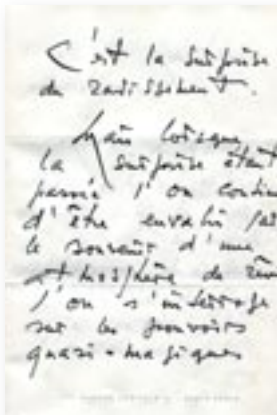 C'est la surprise
du ravissement.
Mais lorsque
la surprise étant
passée l'on contin
d'être envahi par
le souvenir d'une
atmosphère de rêve
l'on s'interroge
sur les pouvoirs
quasi-magiques